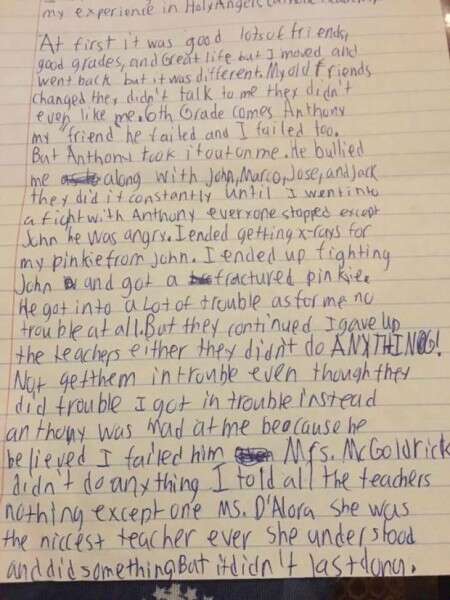 my experience in Holy Angels Catholic
At first it was good lots of friends,
good grades, and Great life but I moved and
went back but it was different. My old friends
changed they didn't talk to me they didn't
even like me. 6th Grade comes Anthony
my "friend he failed and I failed too.
But Anthony took it out on me. He bullied
me along with John, Marco, Jose, and Jack
they did it constantly until I went into
a fight with Anthony everyone stopped except
John he was angry. I ended getting x-rays for
my pinkie from John. I ended up fighting
John and got a fractured pinkie.
He got into a Lot of trouble as for me no
trouble at all. But they continued I gave up
the teachers either they didn't do ANYTHING!
Not get them in trouble even though they
did trouble I got in trouble instead
anthony was mad at me beacause he
believed I failed him Mrs. McGoldrick
didn't do anything I told all the teachers
nothing except one Ms. D'Alora she was
the niccest teacher ever she understood
and did something But it didn't last long.